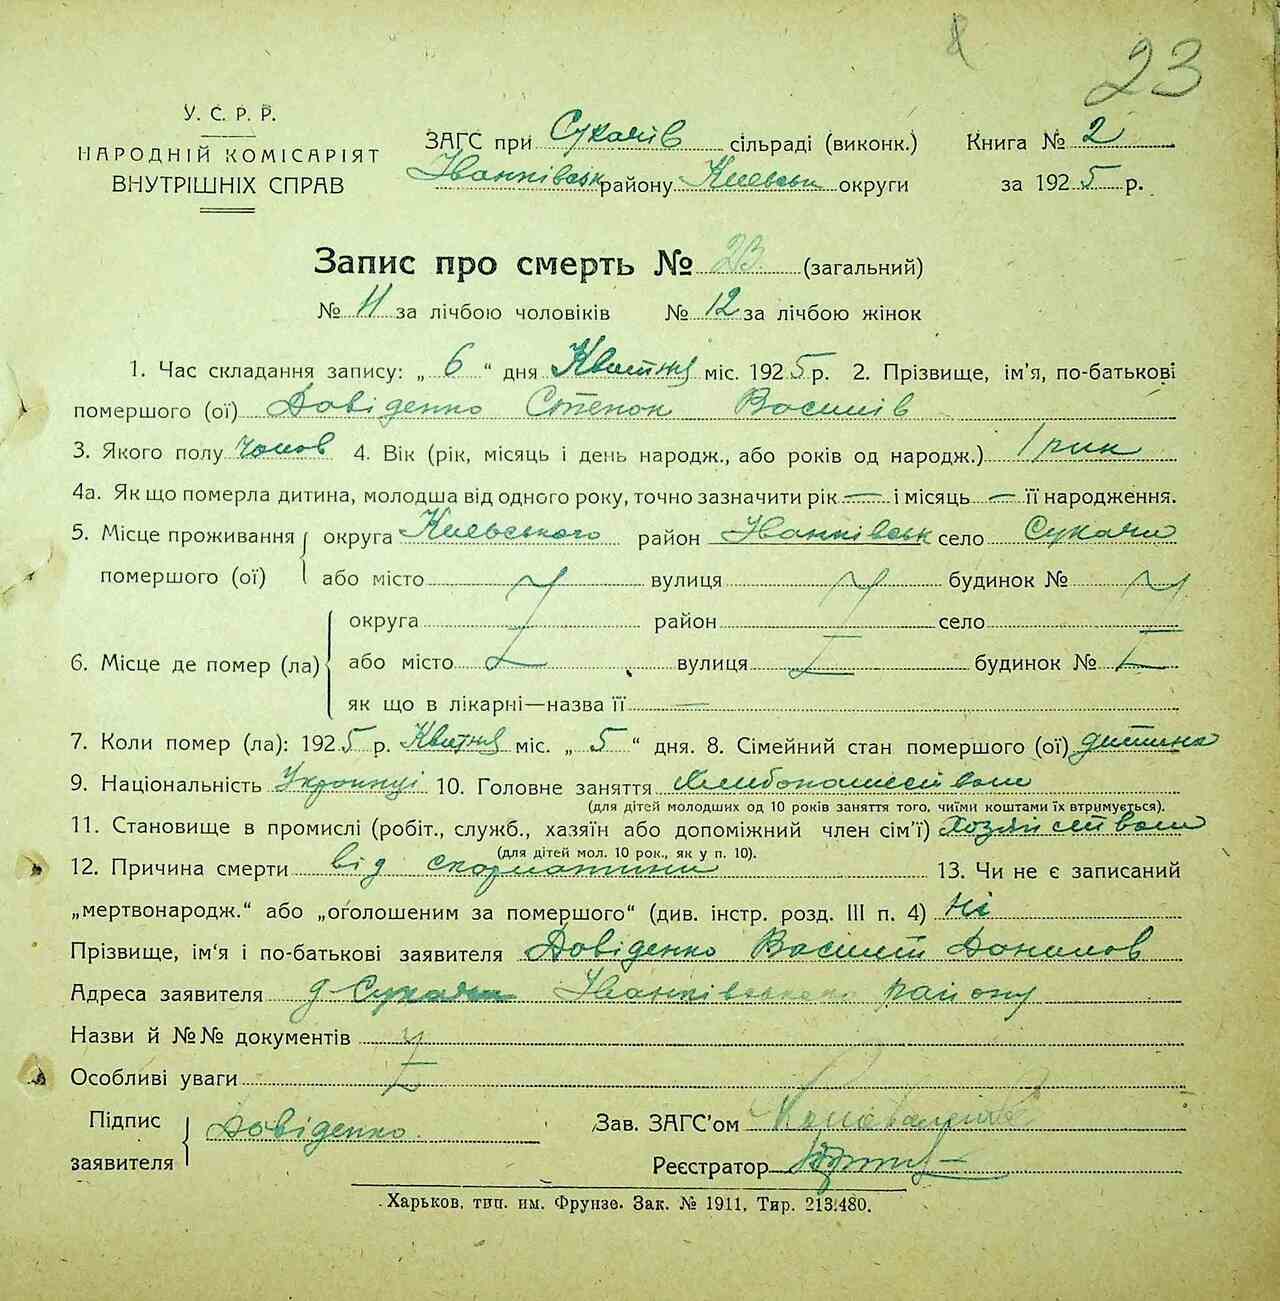 23
У. С. Р. Р.
НАРОДНІЙ КОМІСАРІЯТ
ВНУТРІШНІХ СПРАВ
ЗАГС при Сукачів сільраді (виконк.)
Іванківськ району Киевськ округи
Книга № 2
за 1925 р.
Запис про смерть № 23 (загальний)
№ 11 за лічбою чоловіків № 12 за лічбою жінок
1. Час складання запису: „ 6 “ дня Квітня міс. 1925 р. 2. Прізвище, ім'я, по-батькові
помершого (ої) Довіденко Степон Василів
3. Якого полу чолов 4. Вік (рік, місяць і день народж., або років од народж.) 1 рик
4а. Як що померла дитина, молодша від одного року, точно зазначити рік — і місяць — її народження.
5. Місце проживання округа Киевського район Іванківськ село Сукачи
помершого (ої) або місто вулиця будинок №
округа район село
6. Місце де помер (ла) або місто вулиця будинок №
як що в лікарні—назва її —
7. Коли помер (ла): 1925 р. Квітня міс. „ 5 “ дня. 8. Сімейний стан помершого (ої) дитина
9. Національність Украинці 10. Головне заняття
(для дітей молодших од 10 років заняття того, чиїми коштами їх втримується).
11. Становище в промислі (робіт., служб., хазяїн або допоміжний член сім'ї)
(для дітей мол. 10 рок., як у п. 10).
12. Причина смерти від скорлатини 13. Чи не є записаний
„мертвонародж.“ або „оголошеним за помершого“ (див. інстр. розд. III п. 4) Ні
Прізвище, ім'я і по-батькові заявителя Довіденко Василий Донилов
Адреса заявителя д-Сукачи Іванківського району
Назви й №№ документів
Особливі уваги
Підпис
заявителя Довіденко
Зав. ЗАГС'ом
Реєстратор
Харьков, тип. им. Фрунзе. Зак. № 1911, Тир. 213.480.